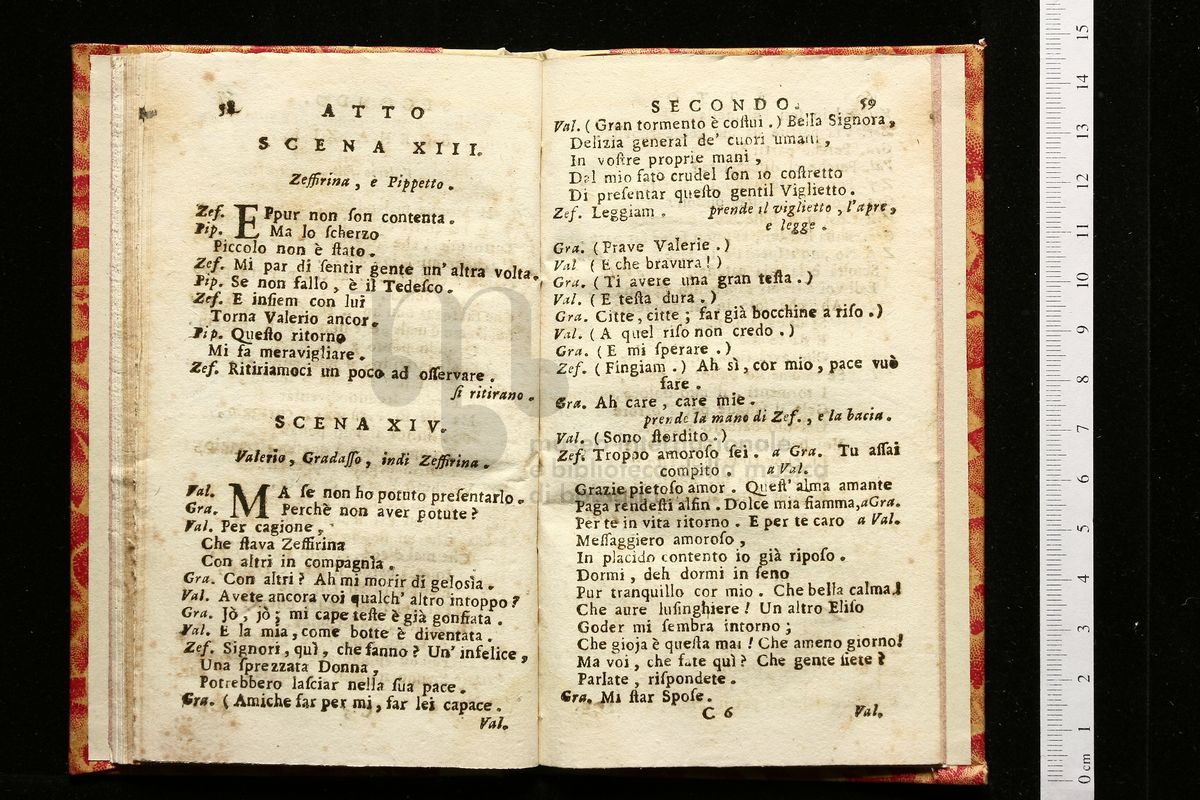 58
ATTO
SCENA XIII.
Zeffirina, e Pippetto.
Zef. EPpur non ſon contenta.
Pip. Ma lo ſcherzo
Piccolo non è ſtato.
Zef. Mi par di ſentir gente un' altra volta.
Pip. Se non fallo, è il Tedeſco.
Zef. E inſiem con lui
Torna Valerio ancor.
Pip. Queſto ritorno
Mi fa meravigliare.
Zef. Ritiriamoci un poco ad oſſervare.
ſi ritirano.
SCENA XIV.
Valerio, Gradaſſo, indi Zeffirina.
Val. MA ſe non ho potuto preſentarlo.
Gra. Perchè non aver potute?
Val. Per cagione,
Che ſtava Zeffirina
Con altri in compagnìa.
Gra. Con altri? Ah mi morir di geloſìa.
Val. Avete ancora voi qualch' altro intoppo?
Gra. Jò, jò; mi cape teſte è già gonfiata.
Val. E la mia, come botte è diventata.
Zef. Signori, quì, che fanno? Un' infelice,
Una ſprezzata Donna,
Potrebbero laſciar nella ſua pace.
Gra. (Amiche far per mi, far lei capace.
Val.
SECONDO. 59
Val. (Gran tormento è coſtui.) Bella Signora,
Delizia general de' cuori umani,
In voſtre proprie mani,
Dal mio fato crudel ſon io coſtretto
Di preſentar queſto gentil Viglietto.
Zef. Leggiam. prende il viglietto, l'apre,
e legge.
Gra. (Prave Valerie.)
Val (E che bravura!)
Gra. (Ti avere una gran teſta.)
Val. (E teſta dura.)
Gra. Citte, citte; far già bocchine a riſo.)
Val. (A quel riſo non credo.)
Gra. (E mi ſperare.)
Zef. (Fingiam.) Ah sì, cor mio, pace vuò
fare.
Gra. Ah care, care mie.
prende la mano di Zef., e la bacia.
Val. (Sono ſtordito.)
Zef. Troppo amoroſo ſei. a Gra. Tu aſſai
compito. a Val.
Grazie pietoſo amor. Queſt' alma amante
Paga rendeſti alfin. Dolce mia fiamma, a Gra.
Per te in vita ritorno. E per te caro a Val.
Meſſaggiero amoroſo,
In placido contento io già ripoſo.
Dormi, deh dormi in ſeno
Pur tranquillo cor mio. Che bella calma!
Che aure luſinghiere! Un altro Eliſo
Goder mi ſembra intorno;
Che gioja è queſta mai! Che ameno giorno!
Ma voi, che fate quì? Che gente ſiete?
Parlate, riſpondete.
Gra. Mi ſtar Spoſe.
C 6 Val.